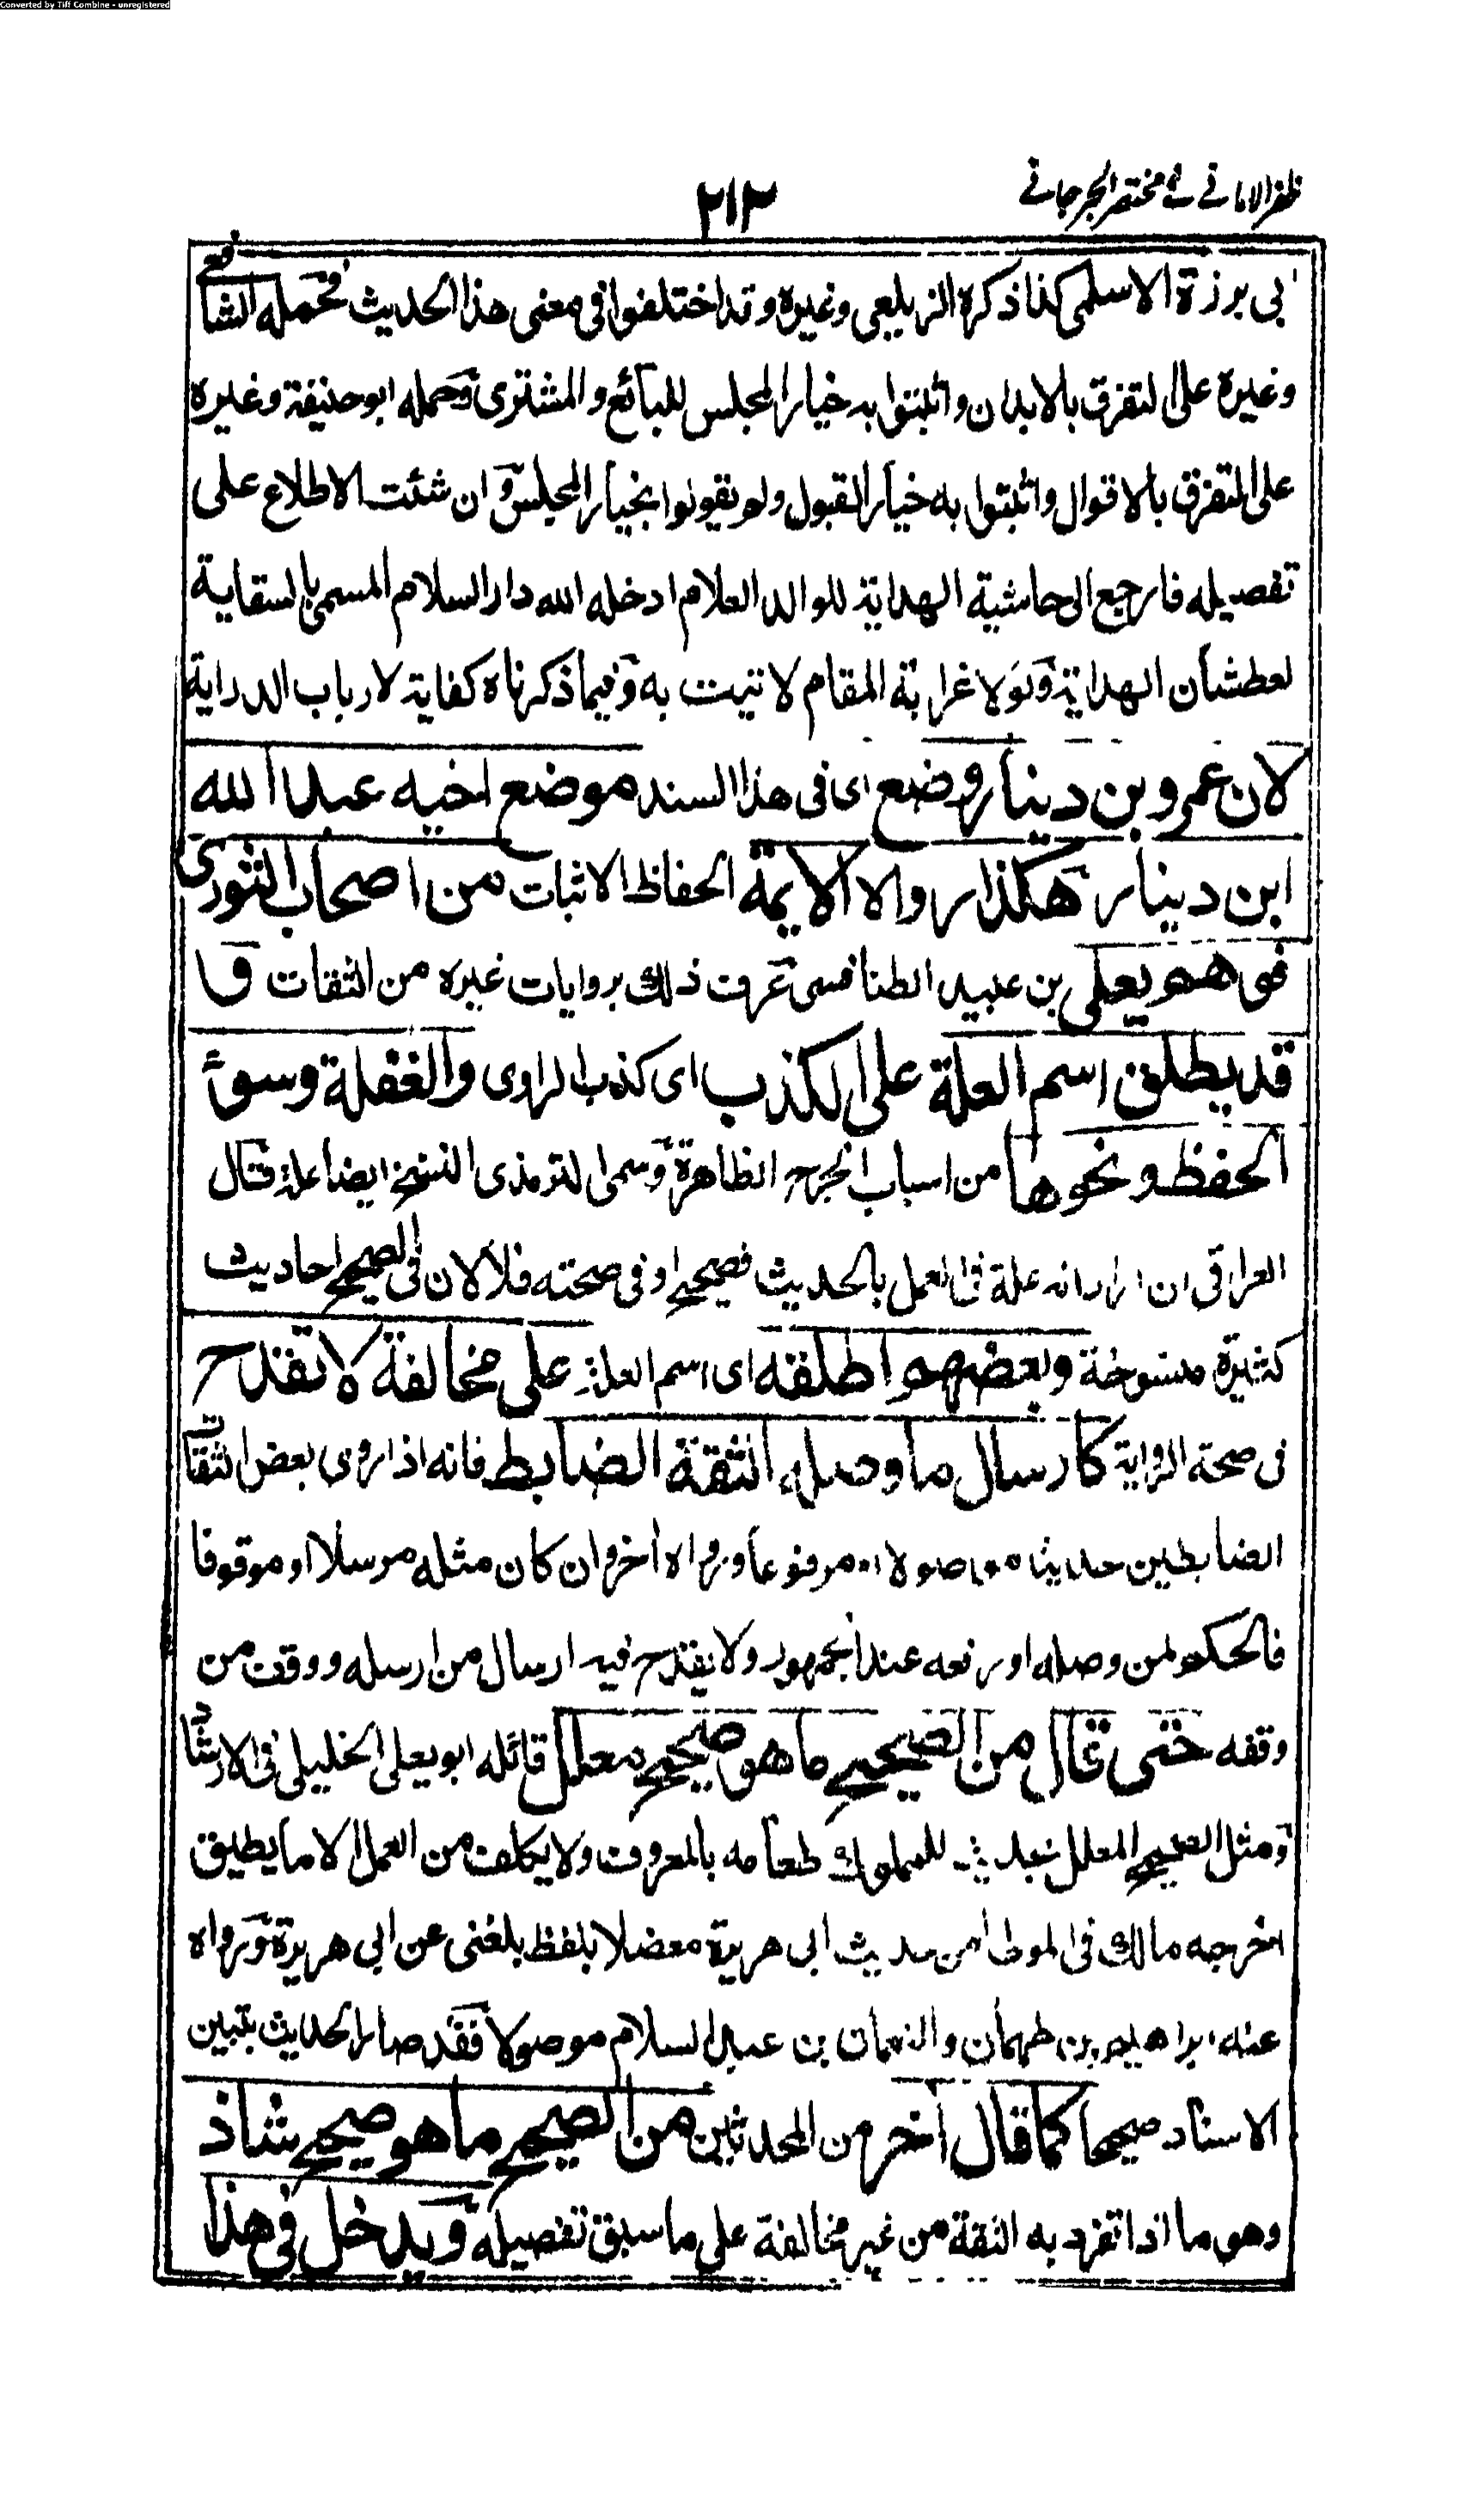 Converted by Tiff Combine - unregistered
ظفر الاماني في مختصر الجرجاني
٢١٢
بى برزة الاسلمى كذا ذكره الزيلعى وغيره وقد اختلفوا فى معنى هذا الحديث فحمله الشافعى
وغيره على التفرق بالابدان واثبتوا به خيار المجلس للبائع والمشترى وحمله ابو حنيفة وغيره
على التفرق بالاقوال واثبتوا به خيار القبول ولم يقولوا بخيار المجلس وان شئت الاطلاع على
تفصيله فارجع الى حاشية الهداية للوالد العلام ادخله الله دار السلام المسمى بالسقاية
لعطشان الهداية ولولا غرابة المقام لاتيت به وفيما ذكرناه كفاية لارباب الدراية
لان عمرو بن دينار وضع اى فى هذا السند موضع اخيه عبد الله
ابن دينار هكذا رواه الائمة الحفاظ الاثبات من اصحاب الثورى
فوهم يعلى بن عبيد الطنافسى عرف ذلك بروايات غيره من الثقات و
قد يطلق اسم العلة على الكذب اى كذب الراوى والغفلة وسوء
الحفظ ونحوها من اسباب الجرح الظاهرة وسمى الترمذى النسخ ايضا علة قال
العراقى ان اراد انه علة فى العمل بالحديث فصحيح او فى صحته فلا لان فى الصحيح احاديث
كثيرة منسوخة وبعضهم اطلقه اى اسم العلة على مخالفة لا تقدح
فى صحة الرواية كارسال ما وصله الثقة الضابط فانه اذا روى بعض الثقات
الضابطين حديثا موصولا او مرفوعا ورواه آخر وان كان مثله مرسلا او موقوفا
فالحكم لمن وصله او رفعه عند الجمهور ولا يقدح فيه ارسال من ارسله ووقف من
وقفه حتى قال من الصحيح ما هو صحيح معلل قائله ابو يعلى الخليلى فى الارشاد
ومثل الصحيح المعلل بحديث للمملوك طعامه بالمعروف ولا يكلف من العمل الا ما يطيق
اخرجه مالك فى الموطأ من حديث ابى هريرة معضلا بلفظ بلغنى عن ابى هريرة ورواه
عنه ابراهيم بن طهمان والنعمان بن عبد السلام موصولا فقد صار الحديث بتبين
الاسناد صحيحا كما قال آخر من المحدثين من الصحيح ما هو صحيح شاذ
وهو ما اذا تفرد به الثقة من غير مخالفة على ما سبق تفصيله ويدخل فى هذا